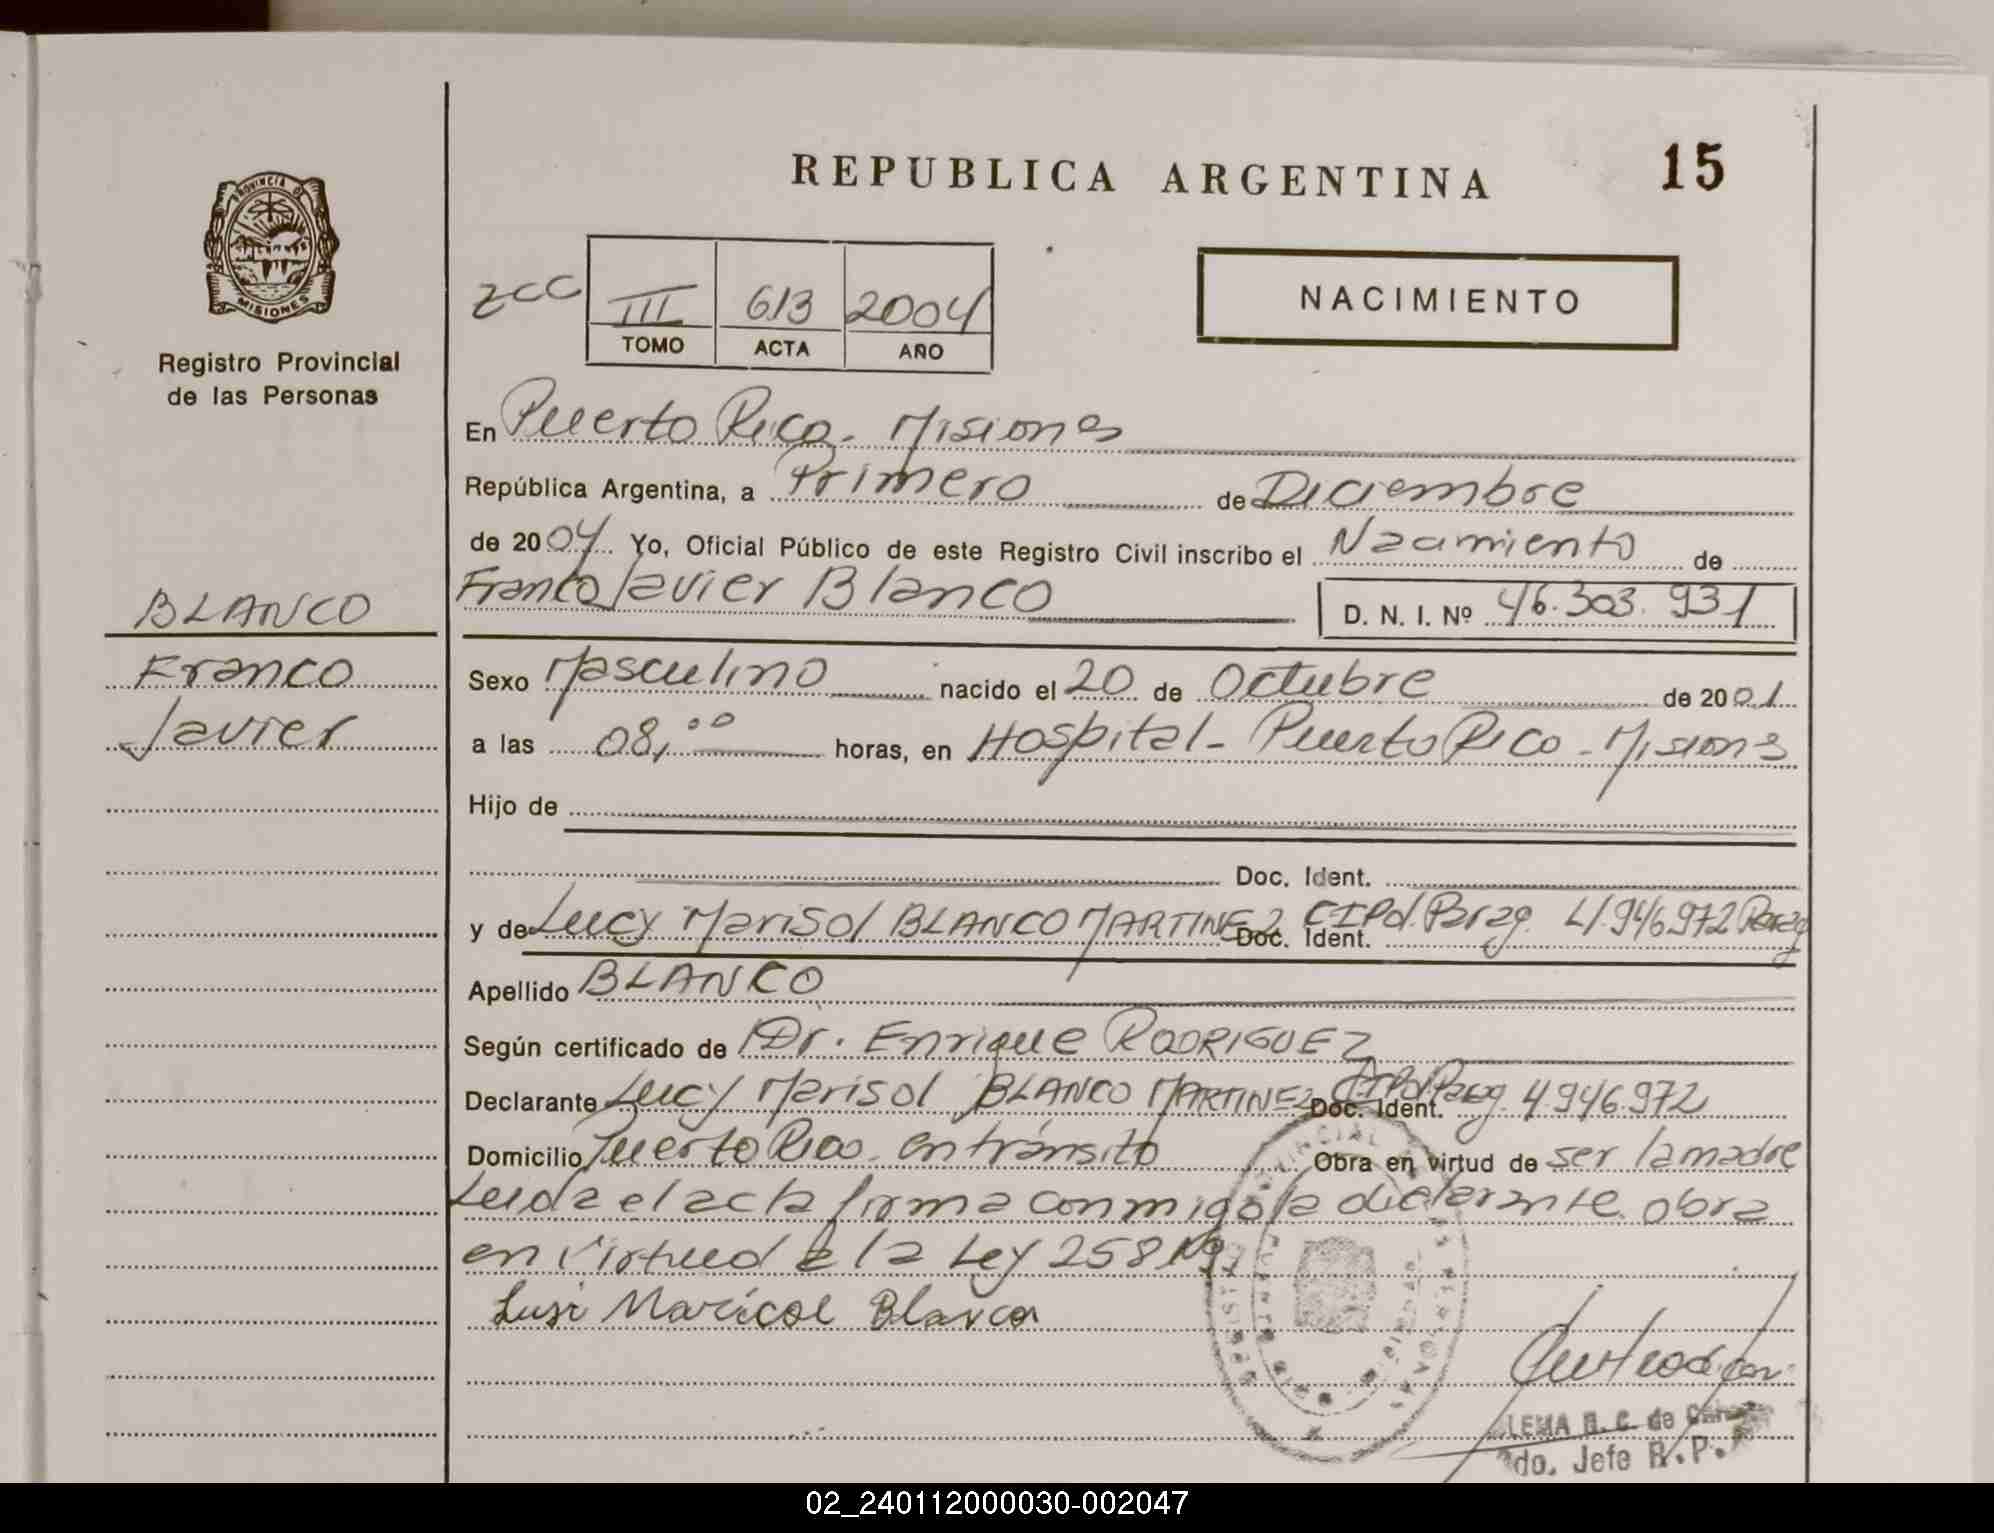 REPUBLICA ARGENTINA
15
PROVINCIA DE
MISIONES
Registro Provincial
de las Personas
zcc
III 613 2004
TOMO ACTA AÑO
NACIMIENTO
En Puerto Rico. Misiones
República Argentina, a Primero de Diciembre
de 2004 Yo, Oficial Público de este Registro Civil inscribo el Nacimiento de
Franco Javier Blanco
D. N. I. Nº 46.303.931
BLANCO
Franco
Javier
Sexo Masculino nacido el 20 de Octubre de 2001
a las 08,00 horas, en Hospital - Puerto Rico - Misiones
Hijo de
Doc. Ident.
y de Lucy Marisol BLANCO MARTINEZ Doc. Ident. CIPol. Parag. 4.946.972 Parag
Apellido BLANCO
Según certificado de Dr. Enrique RODRIGUEZ
Declarante Lucy Marisol BLANCO MARTINEZ Doc. Ident. CIPol. Parag. 4.946.972
Domicilio Puerto Rico. en tránsito Obra en virtud de ser la madre
Leida el acta firma conmigo la declarante. obra
en virtud de la Ley 258
Lusi Maricol Blanco
LEMA B. C. de
do. Jefe R.P.
02_240112000030-002047